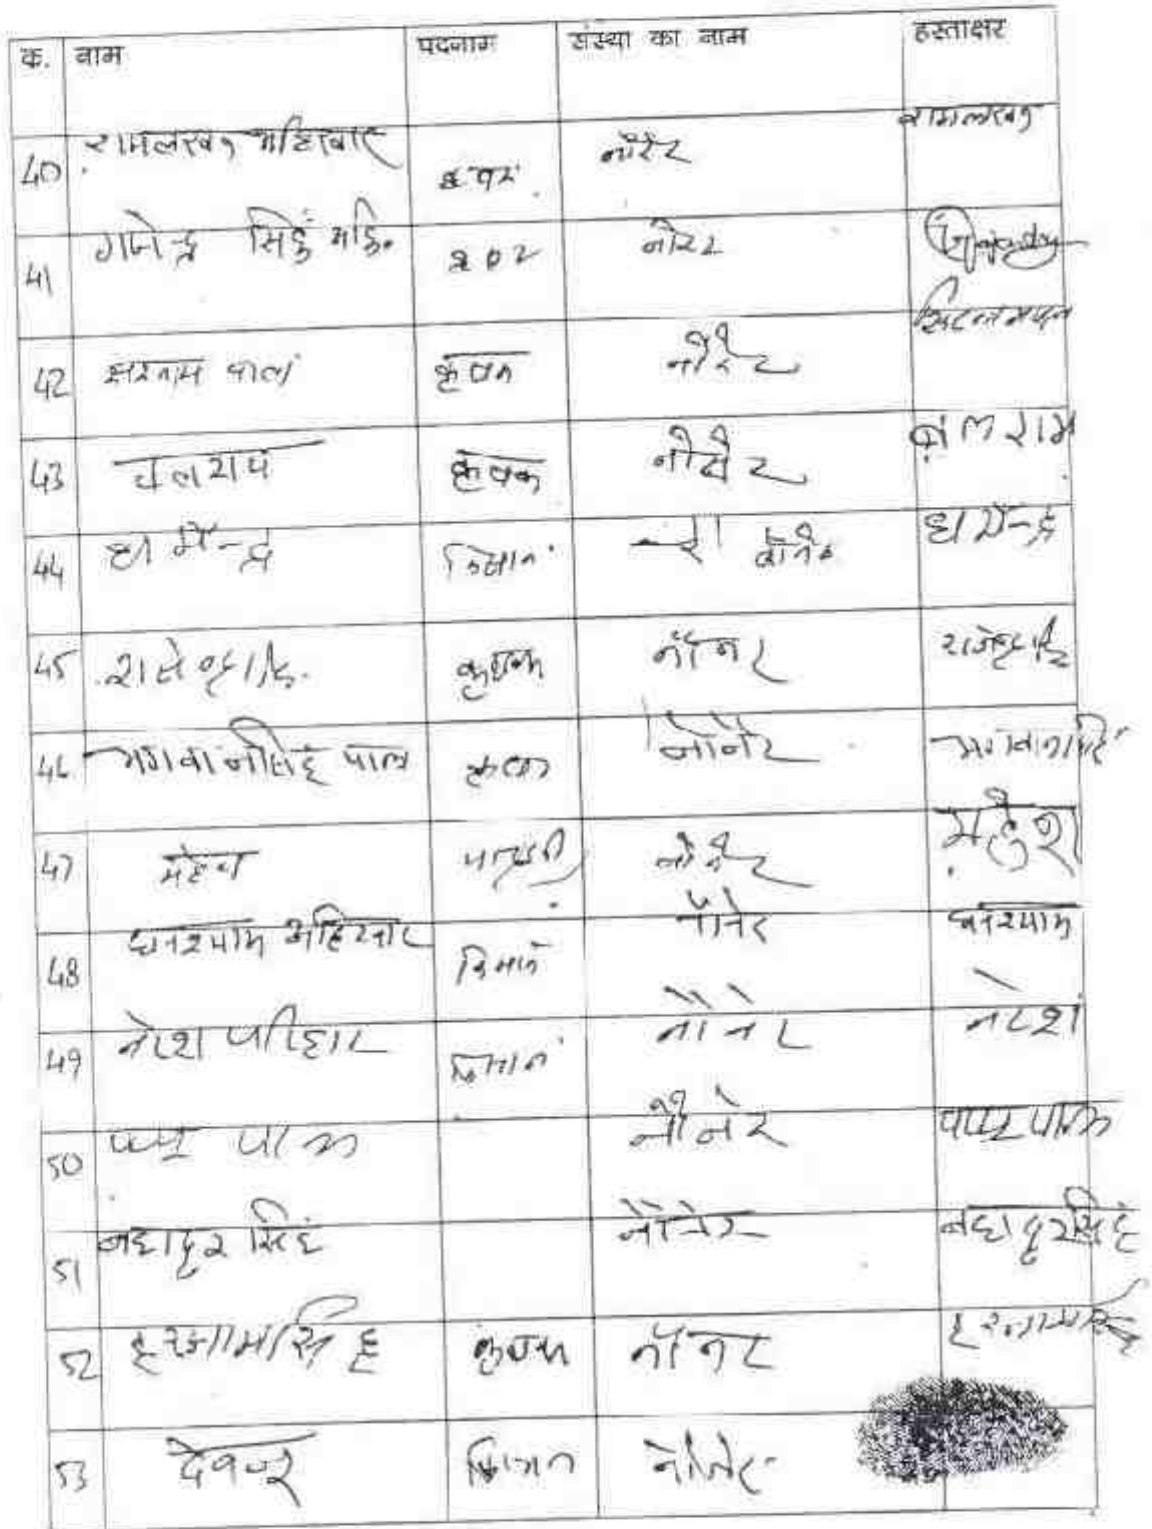 क. नाम पदनाम संस्था का नाम हस्ताक्षर
40 रामलखन अहिरवार नौनेर रामलखन
41 गजेन्द्र सिंह अहि. नौनेर
42 पाल कृषक नौनेर
43 कृषक नौनेर बलराम
44 धर्मेन्द्र किसान धर्मेन्द्र
45 कृषक नौनेर
46 भगवानसिंह पाल कृषक नौनेर भगवानसिंह
47 महेश नौनेर महेश
48 घनश्याम अहिरवार किसान नौनेर घनश्याम
49 नरेश परिहार किसान नौनेर नरेश
50 पप्पू पाल नौनेर पप्पू पाल
51 बहादुर सिंह नौनेर बहादुर सिंह
52 हरनामसिंह कृषक नौनेर हरनामसिंह
53 किसान नौनेर